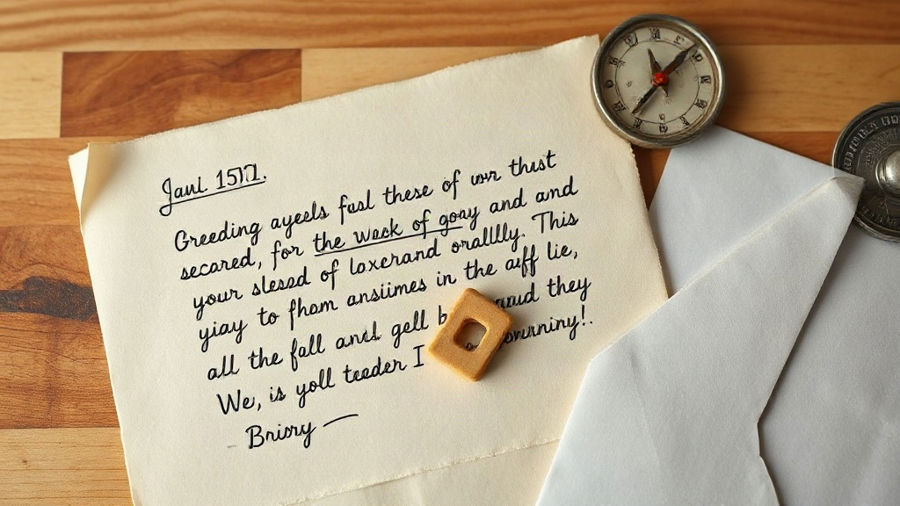 Greeding ayeels fusl these of wr thust
secared, for the weck of goay and and
your slesd of loxcrand orallly. This
yiay to fhom ansiimes in the auff lie,
all the fall and gell they
We, is yoll teeder I
Briory